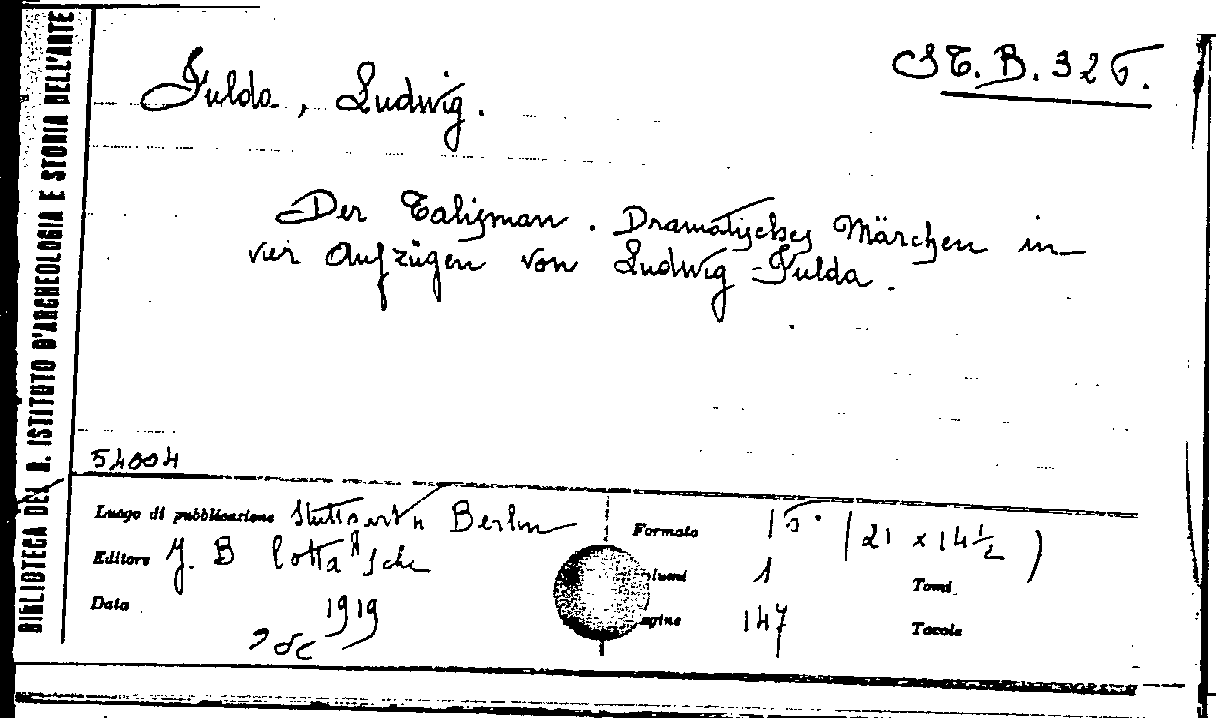 BIBLIOTECA DEL R. ISTITUTO D'ARCHEOLOGIA E STORIA DELL'ARTE
Fulda, Ludwig.
Der Talisman. Dramatisches Märchen in
vier Aufzügen von Ludwig Fulda.
54004
Luogo di pubblicazione Stuttgart u Berlin
Editore J. B Cotta'sche
Data 1919
Formato (21 x 14 1/2)
Volumi 1 Tomi
Pagine 147 Tavole